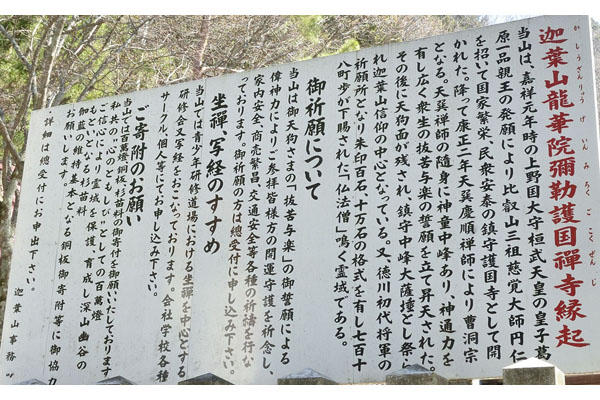 迦葉山龍華院彌勒護国禪寺縁起
かしょうざんりゅうげいんみろくごこくぜんじ
当山は、嘉祥元年時の上野国大守桓武天皇の皇子葛
原一品親王の発願により比叡山三祖慈覚大師円仁
を招いて国家繁栄、民衆安泰の鎮守護国寺として開
かれた。降って康正二年天巽慶順禅師により曹洞宗
となる。天巽禅師の随身に神童中峰あり、神通力を
有し広く衆生の抜苦与楽の誓願を立て昇天された。
その後に天狗面が残され、鎮守中峰大薩埵として祭ら
れ迦葉山信仰の中心となっている。又、徳川初代将軍の
祈願所となり朱印百石、十万石の格式を有し七百十
八町歩が下賜された「仏法僧」鳴く霊域である。
御祈願について
当山は御天狗さまの「抜苦与楽」の御誓願による
偉神力によりご参拝皆様方の開運守護を祈念し、
家内安全、商売繁昌、交通安全等各種の祈祷を行な
っております。御祈願の方は總受付に申し込み下さい。
坐禪、写経のすすめ
当山では青少年研修道場における坐禪を中心とする
研修会又写経をおこなっております。会社学校各種
サークル、個人等にてお申し込み下さい。
ご寄附のお願い
当山では百萬燈、銅板、杉苗料の御寄付を御願いしております
私共の"心のともしび"としての百萬燈
ご信心のいしずえとなる杉苗料
もといとなり霊域を保護、育成し深山幽谷の
伽藍の維持基本となる銅板御寄附等に御協力
お願いします。
詳細は總受付にお申出下さい。
迦葉山事務